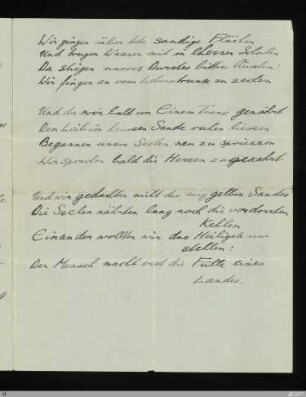 Wir gingen über tote sandige Flächen
Und trugen Wasser mit in thönernen Schalen
Da stiegen unseres Durstes bittre Qualen:
Wir fingen an vom Lebenstrunk zu zechen
Und da wir bald von Einem Trank genährt
Den Leib im heissen Sande ruhen liessen
Begannen unsre Seelen neu zu spriessen
Wir sprachen bald die Herzen zugekehrt
Und wir gedachten nicht des Sandes
Die Seelen nährten lang noch die verdorrten
Kehlen
Einander wollten wir das Heiligste
stellen:
Der Mensch macht erst die Fülle eines
Landes.